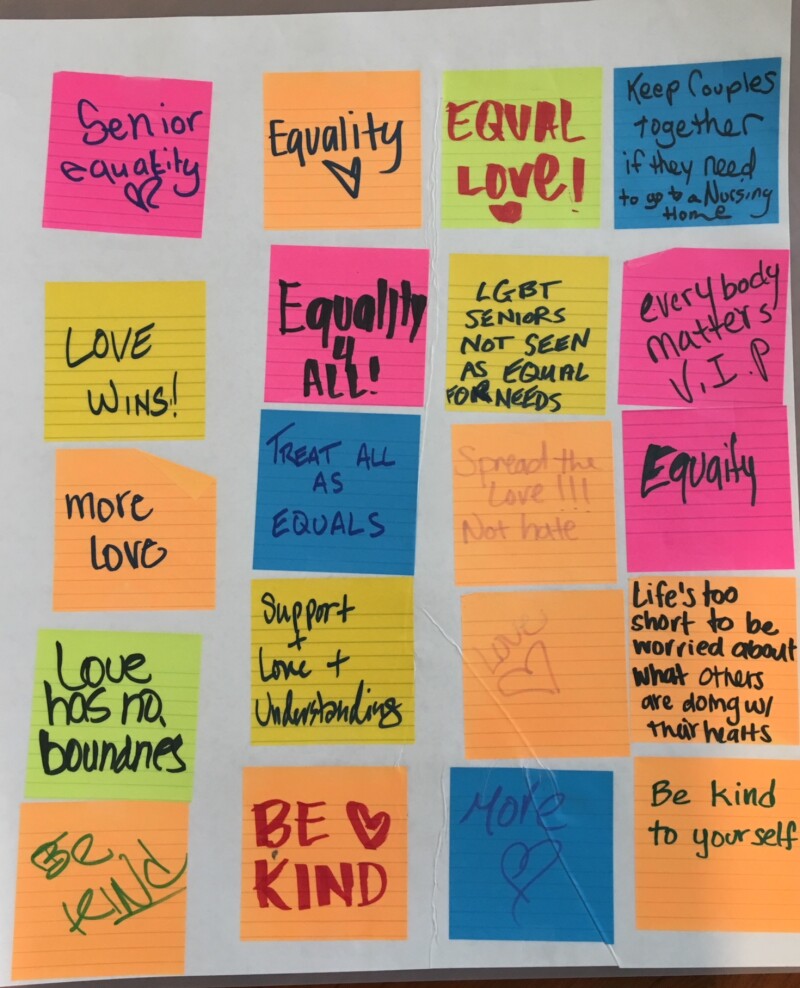 Senior
equality
Equality
EQUAL
LOVE!
Keep Couples
together
if they need
to go to a Nursing
Home
LOVE
WINS!
Equality
4
ALL!
LGBT
SENIORS
NOT SEEN
AS EQUAL
FOR NEEDS
everybody
matters
V.I.P
more
love
TREAT ALL
AS
EQUALS
Spread the
Love!!!
Not hate
Equaity
Love
has no
boundries
Support
+
Love +
Understanding
Love
Life's too
short to be
worried about
what others
are doing w/
their hearts
Be
KIND
BE
KIND
More
Be kind
to yourself